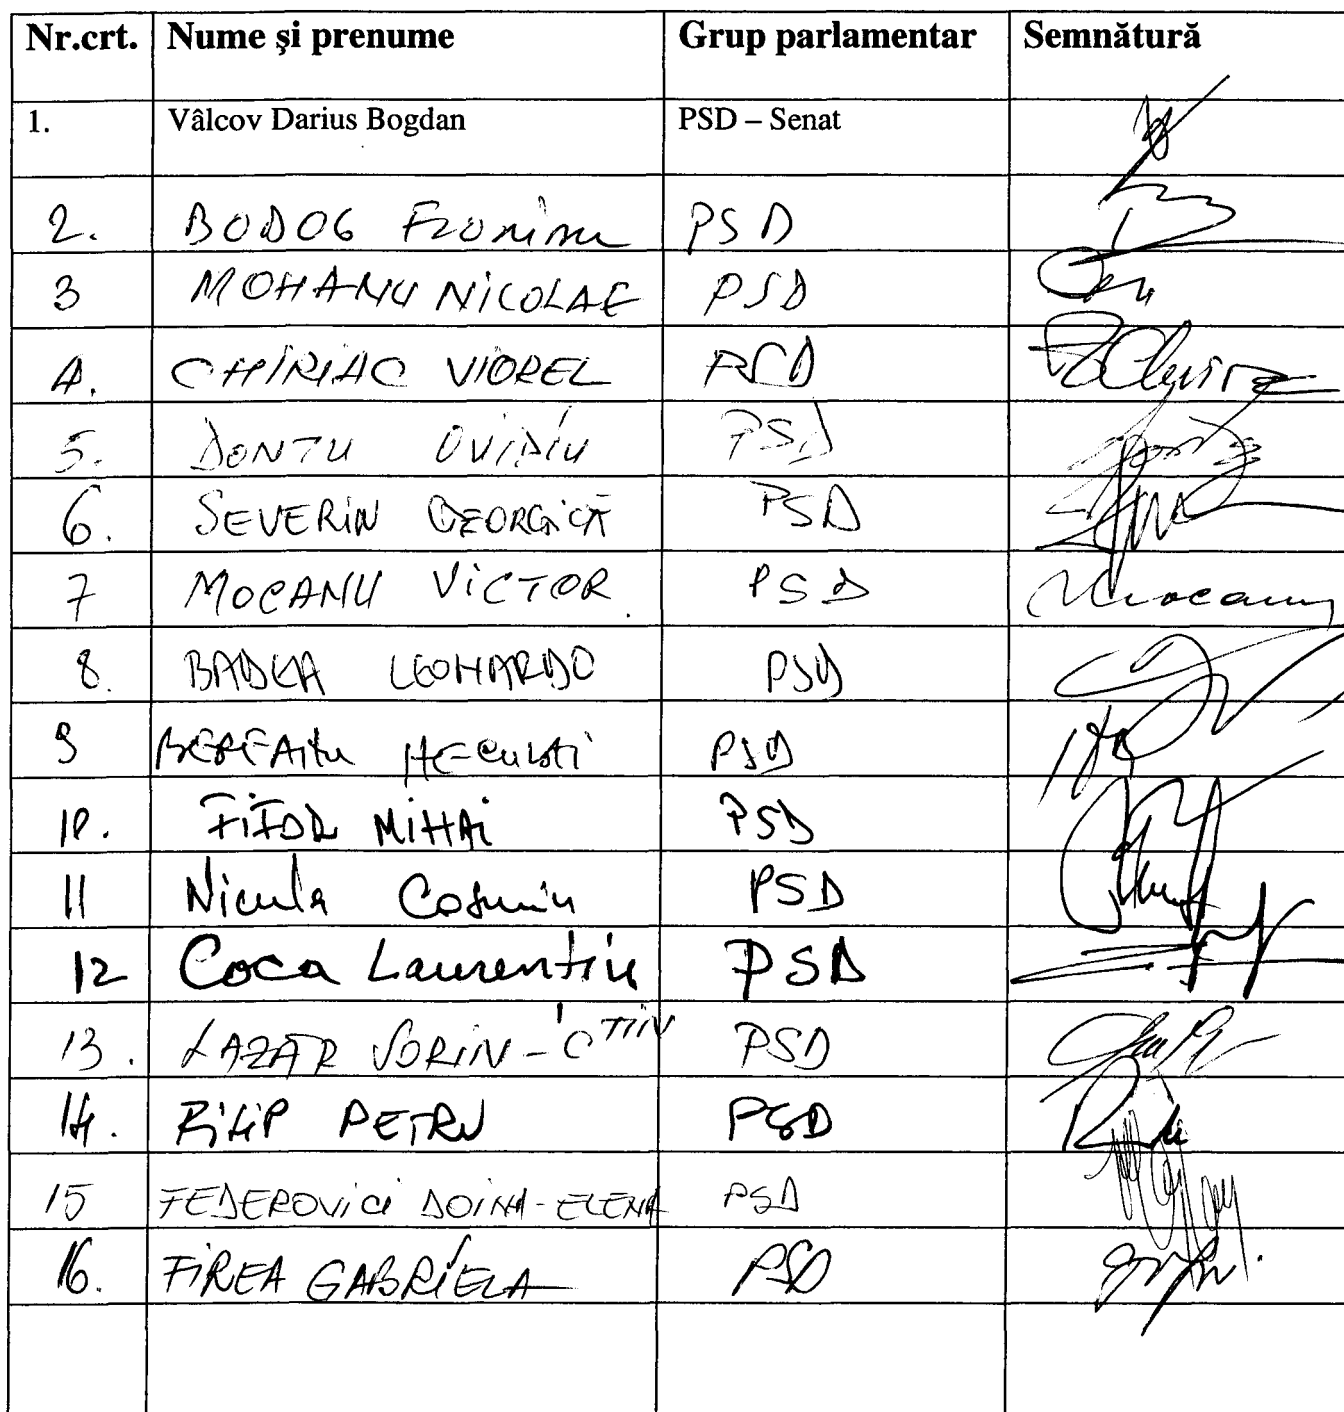 Nr.crt. Nume și prenume Grup parlamentar Semnătură
1. Vâlcov Darius Bogdan PSD – Senat
2. BODOG Florian PSD
3 MOHANU NICOLAE PSD
4. CHIRIAC VIOREL PSD
5. DONTU OVIDIU PSD
6. SEVERIN GEORGICĂ PSD
7 MOCANU VICTOR PSD Mocanu
8. BADEA LEONARDO PSD
9 PSD
10. FIFOR MIHAI PSD
11 Nicula Cosmin PSD
12 Coca Laurentiu PSD
13. LAZAR SORIN-C-TIN PSD
14. FILIP PETRU PSD
15 FEDEROVICI DOINA-ELENA PSD
16. FIREA GABRIELA PSD